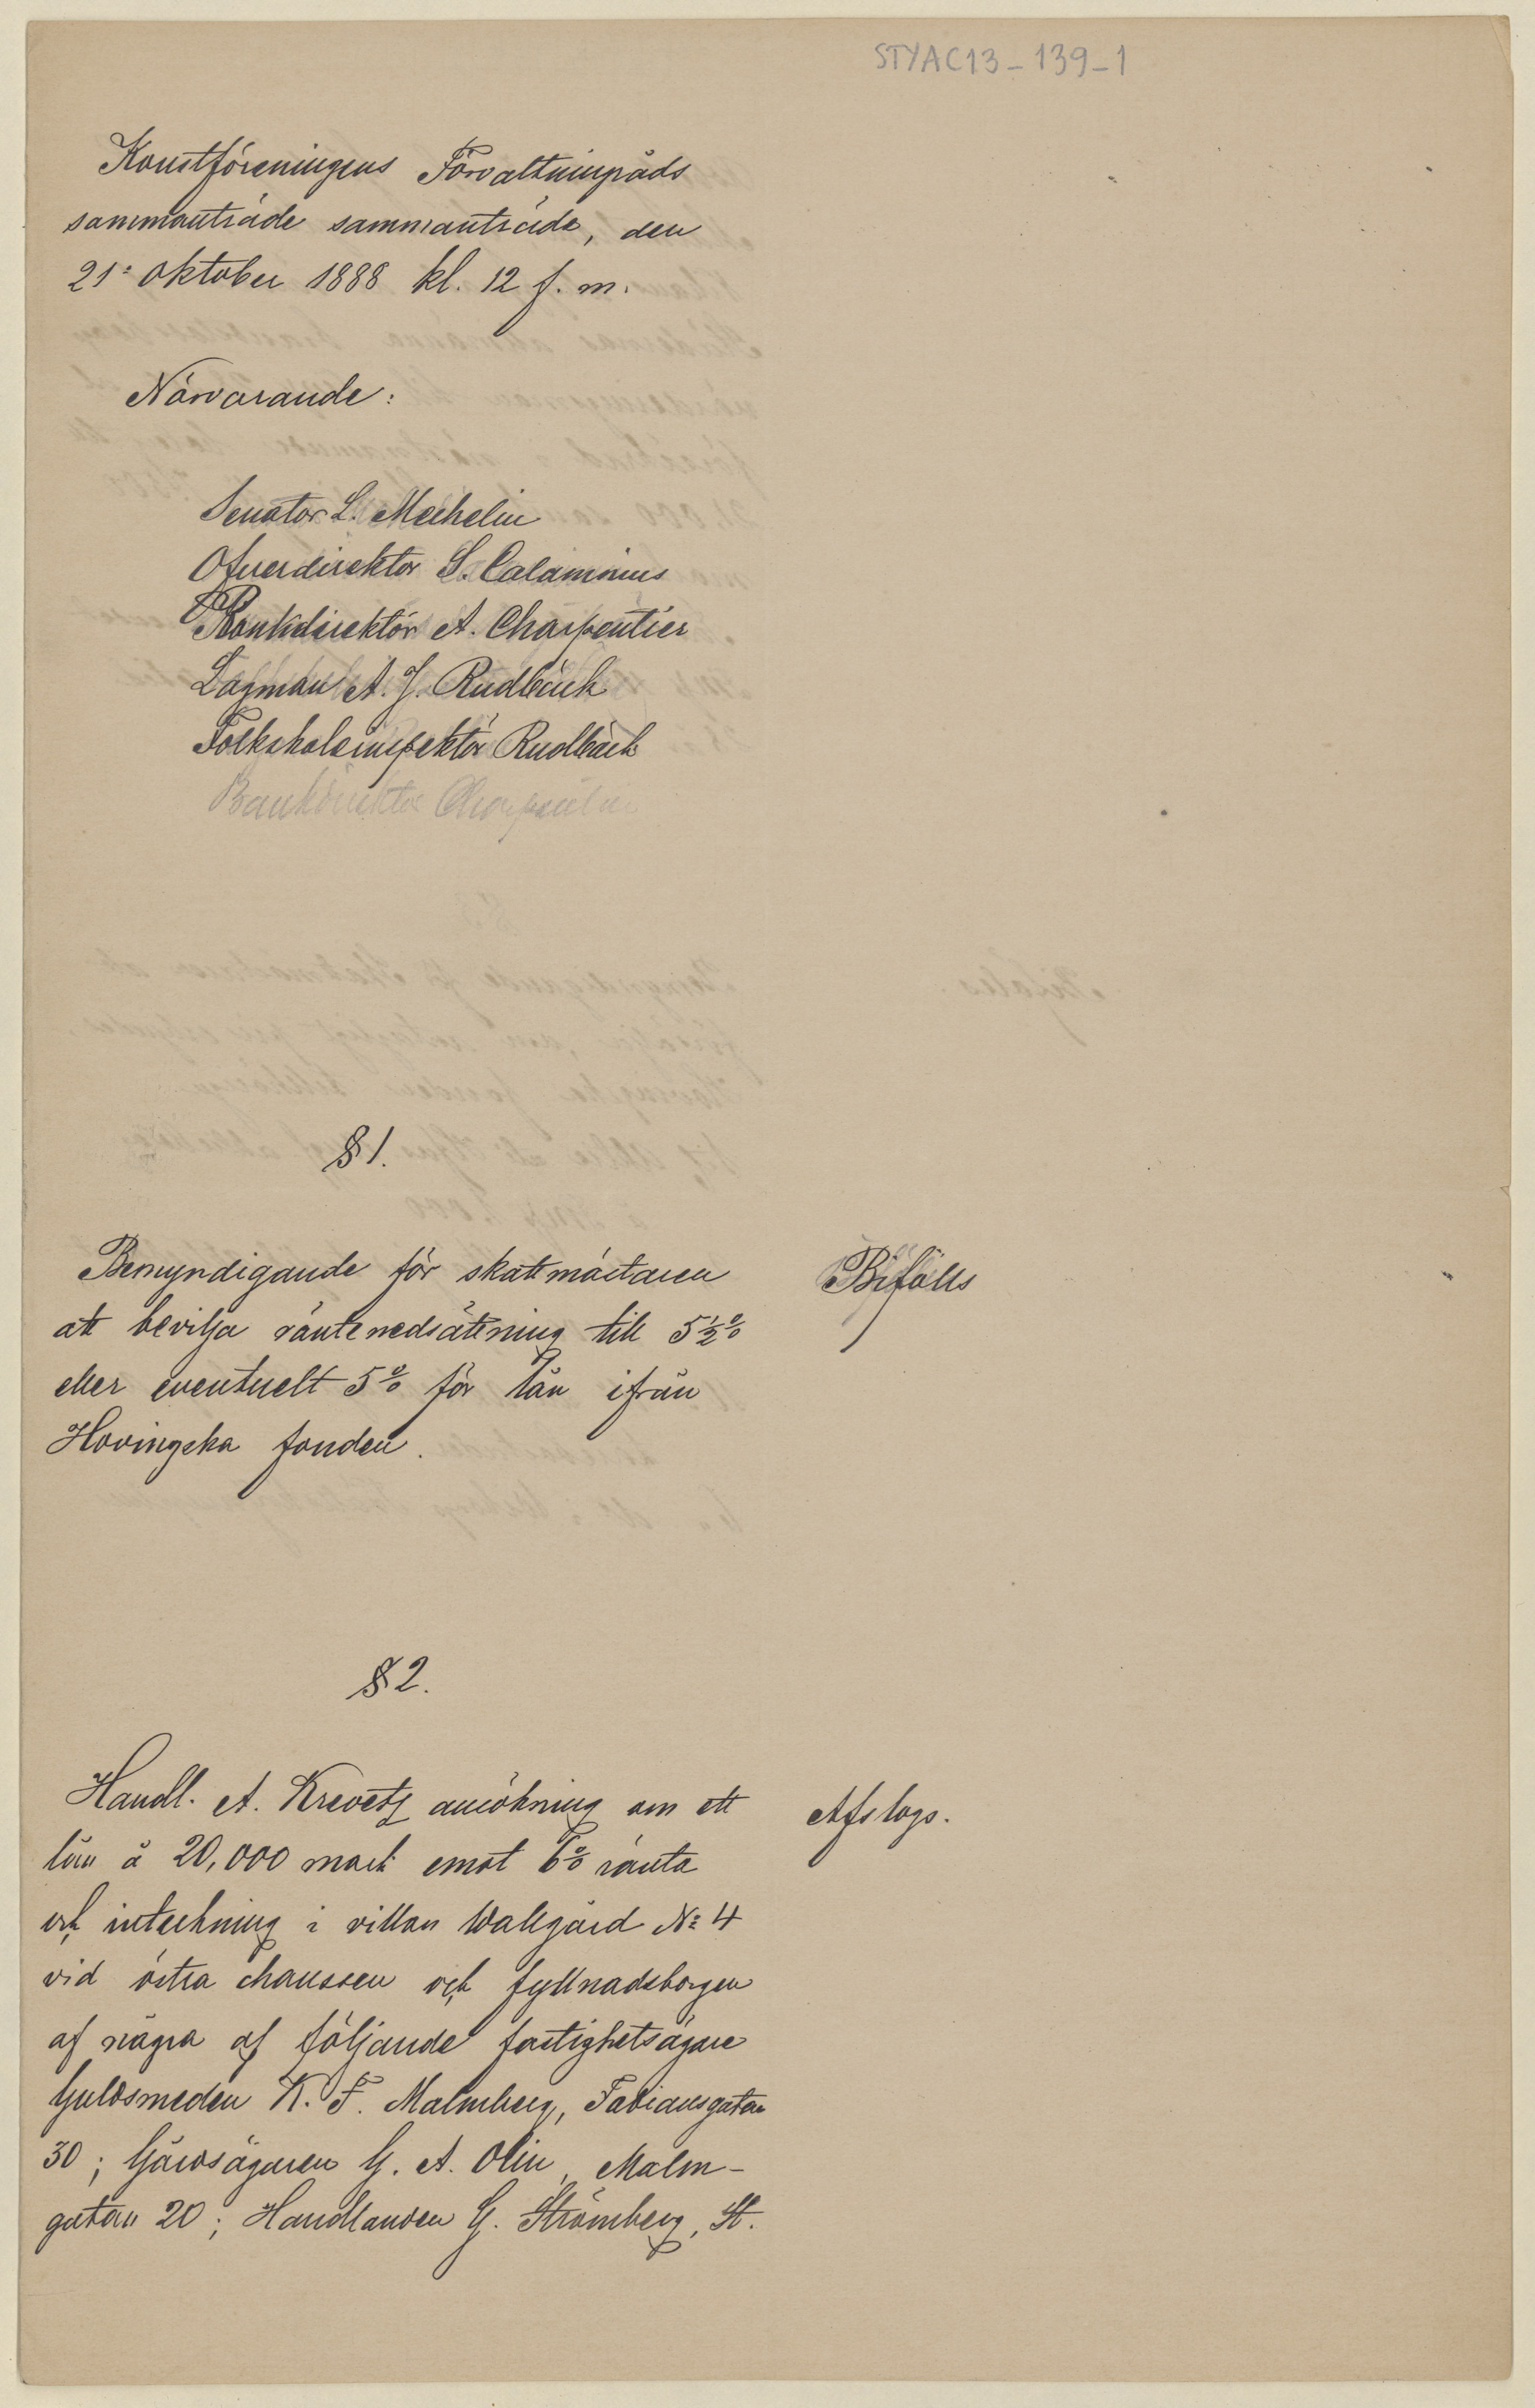 STYAC13-139-1
Konstföreningens Förvaltningsråds
sammanträde sammanträde, den
21: Oktober 1888 kl. 12 f. m.
Närvarande:
Senator L. Mechelin
Öfverdirektör S. Calamnius
Bankdirektör A. Charpentier
Lagman A. J. Rudbäck
Folkskoleinspektör Rudbäck
Bankdirektör Charpentier
§ 1.
Bemyndigande för skattmästaren
att bevilja räntenedsättning till 5½ %
eller eventuelt 5 % för lån ifrån
Hovingska fonden.
Bifölls
§ 2.
Handl. A. Krevetz ansökning om ett
lån å 20,000 mark emot 6 % ränta
och inteckning i villan Wallgård No 4
vid östra chaussen och fyllnadsborgen
af några af följande fastighetsägare
Guldsmeden K. F. Malmberg, Fabiansgatan
30; Gårdsägaren G. A. Olin, Malm-
gatan 20; Handlanden G. Strömberg, St.
Afslogs.